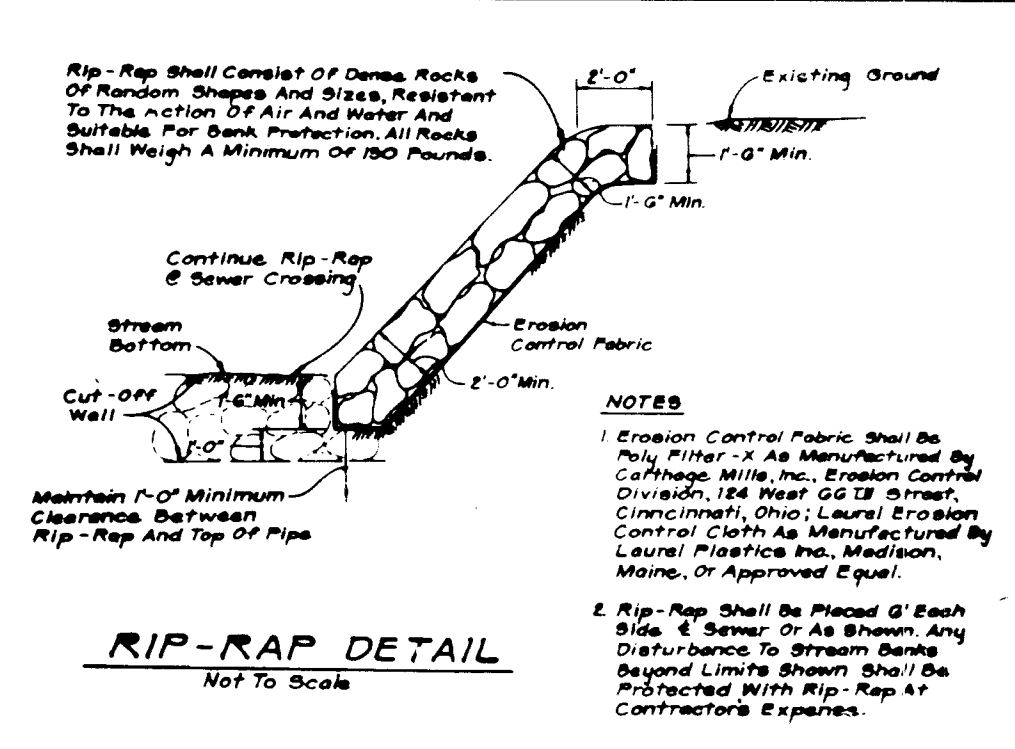 Rip-Rap Shall Consist Of Dense Rocks
Of Random Shapes And Sizes, Resistant
To The Action Of Air And Water And
Suitable For Bank Protection. All Rocks
Shall Weigh A Minimum Of 150 Pounds.
2'-0"
Existing Ground
1'-6" Min.
1'-6" Min.
Continue Rip-Rap
@ Sewer Crossing
Stream
Bottom
Erosion
Control Fabric
2'-0" Min.
Cut-Off
Wall
1'-6" Min.
1'-0"
Maintain 1'-0" Minimum
Clearance Between
Rip-Rap And Top Of Pipe
RIP-RAP DETAIL
Not To Scale
NOTES
1. Erosion Control Fabric Shall Be
Poly Filter-X As Manufactured By
Carthage Mills, Inc., Erosion Control
Division, 124 West 66th Street,
Cinncinnati, Ohio; Laurel Erosion
Control Cloth As Manufactured By
Laurel Plastics Inc., Madison,
Maine, Or Approved Equal.
2. Rip-Rap Shall Be Placed 6' Each
Side ℄ Sewer Or As Shown. Any
Disturbance To Stream Banks
Beyond Limits Shown Shall Be
Protected With Rip-Rap At
Contractor's Expense.